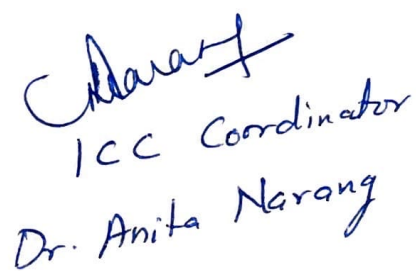 Narang
ICC Coordinator
Dr. Anita Narang